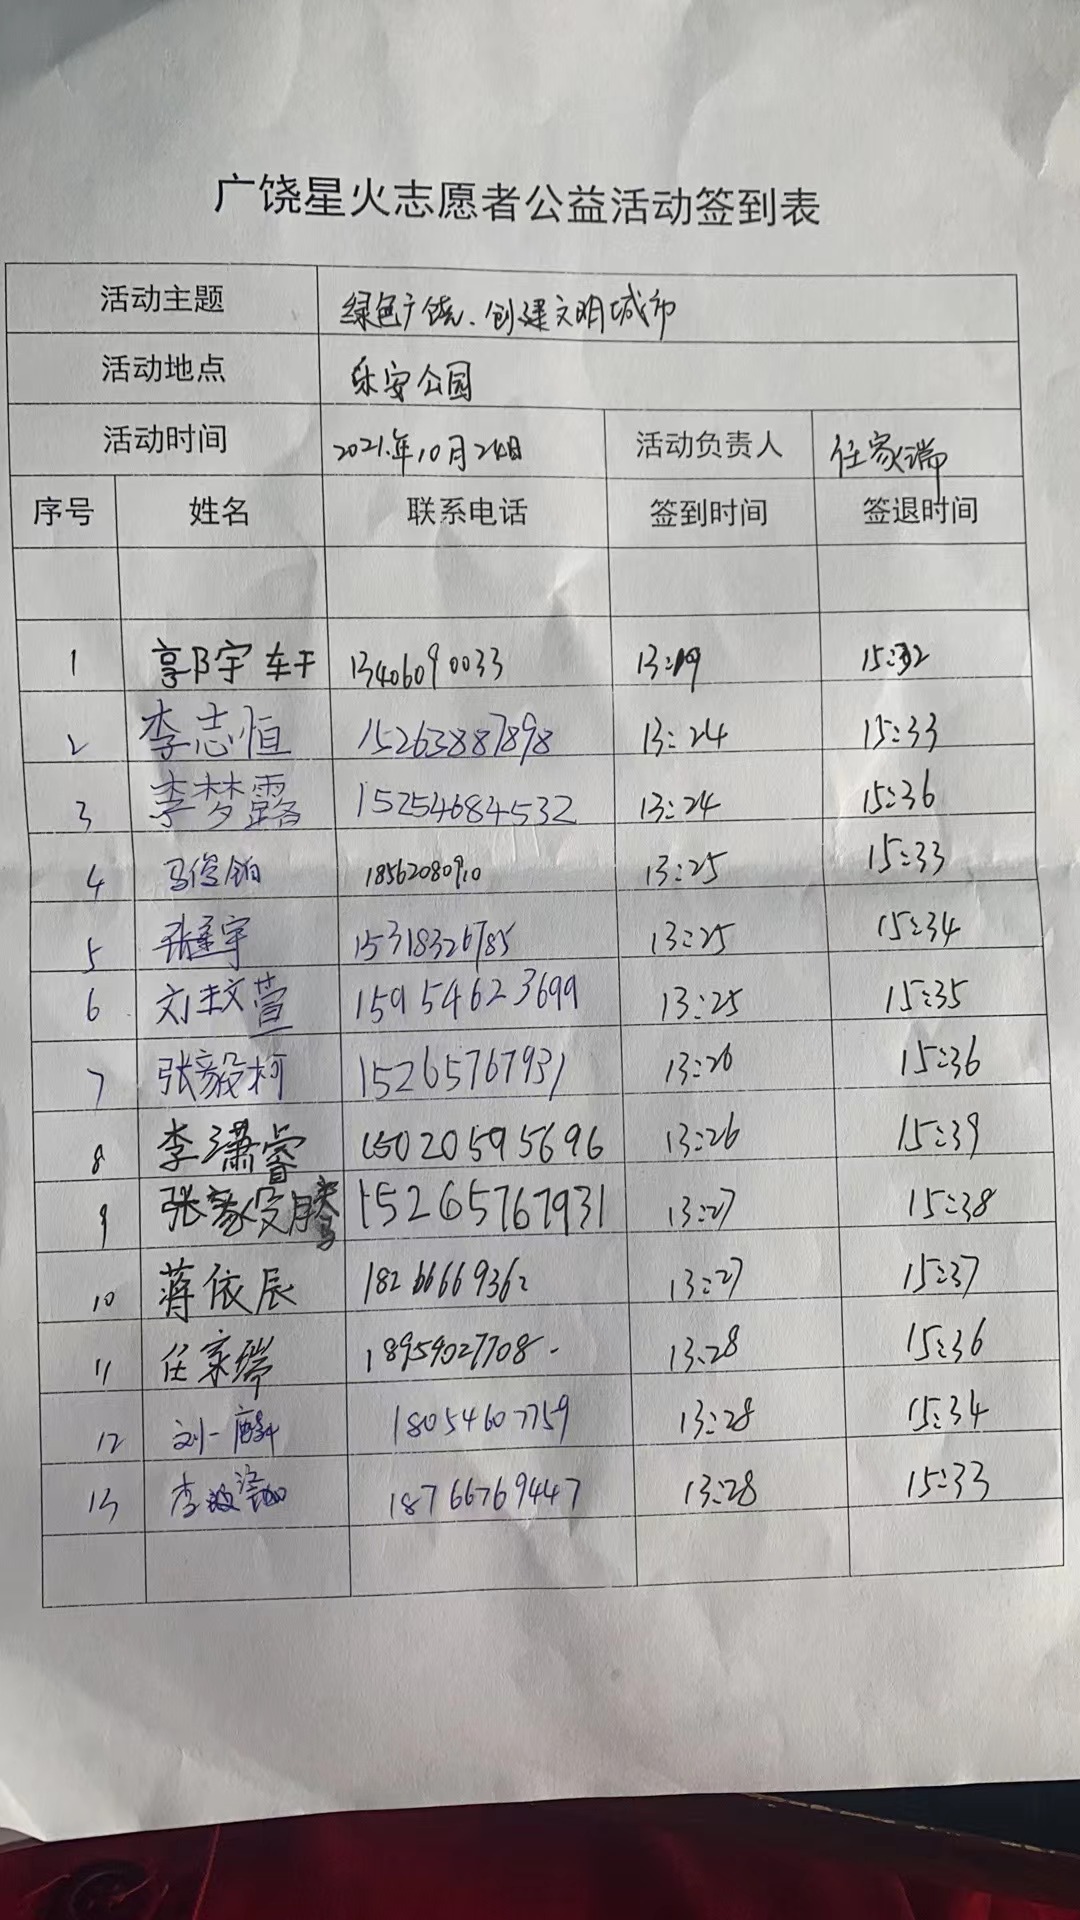 广饶星火志愿者公益活动签到表
活动主题 绿色广饶、创建文明城市
活动地点 乐安公园
活动时间 2021年10月24日 活动负责人 任家瑞
序号 姓名 联系电话 签到时间 签退时间
1 宇轩 13406090033 13:19 15:32
2 李志恒 15263887898 13:24 15:33
3 李梦露 15254684532 13:24 15:36
4 马俊铂 18562080910 13:25 15:33
5 张宇 15318326785 13:25 15:34
6 刘萱 15954623699 13:25 15:35
7 张毅柯 15265767931 13:26 15:36
8 李潇睿 15020595696 13:26 15:39
9 张毅腾 15265767931 13:27 15:38
10 蒋依辰 18266669362 13:27 15:37
11 任家瑞 18954027708 13:28 15:36
12 刘一麟 18054607759 13:28 15:34
13 李 18766769447 13:28 15:33